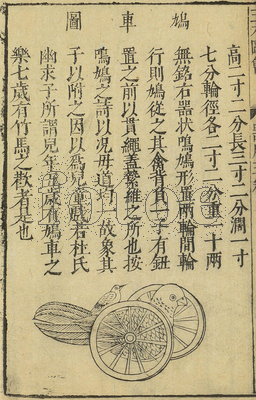 鳩車圖
高二寸二分長三寸二分濶一寸
七分輪徑各二寸二分重一十兩
無銘右器状鳴鳩形置兩輪間輪
行則鳩從之其禽背負一子有鈕
置之前以貫繩盖縶維之所也按
鳴鳩之詩以况母道均一故象其
子以附之因以爲兒童戲若杜氏
幽求子所謂兒年五歲有鳩車之
樂七歲有竹馬之歡者是也